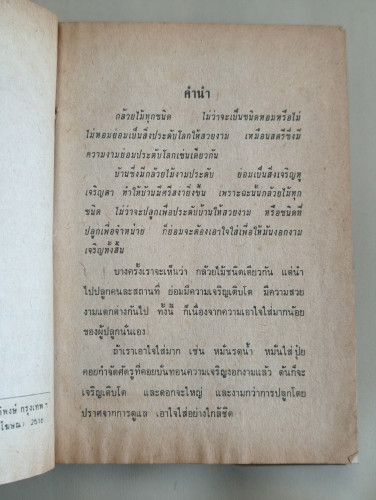 คำนำ
กล้วยไม้ทุกชนิด ไม่ว่าจะเป็นชนิดหอมหรือไม่
ไม่หอมย่อมเป็นสิ่งประดับโลกให้สวยงาม เหมือนสตรีซึ่งมี
ความงามย่อมประดับโลกเช่นเดียวกัน
บ้านซึ่งมีกล้วยไม้งามประดับ ย่อมเป็นสิ่งเจริญหู
เจริญตา ทำให้บ้านมีศรีสง่ายิ่งขึ้น เพราะฉะนั้นกล้วยไม้ทุก
ชนิด ไม่ว่าจะปลูกเพื่อประดับบ้านให้สวยงาม หรือชนิดที่
ปลูกเพื่อจำหน่าย ก็ย่อมจะต้องเอาใจใส่เพื่อให้มันงอกงาม
เจริญทั้งสิ้น
บางครั้งเราจะเห็นว่า กล้วยไม้ชนิดเดียวกัน แต่นำ
ไปปลูกคนละสถานที่ ย่อมมีความเจริญเติบโต มีความสวย
งามแตกต่างกันไป ทั้งนี้ ก็เนื่องจากความเอาใจใส่มากน้อย
ของผู้ปลูกนั่นเอง
ถ้าเราเอาใจใส่มาก เช่น หมั่นรดน้ำ หมั่นใส่ปุ๋ย
คอยกำจัดศัตรูที่คอยบั่นทอนความเจริญงอกงามแล้ว ต้นก็จะ
เจริญเติบโต และดอกจะใหญ่ และงามกว่าการปลูกโดย
ปราศจากการดูแล เอาใจใส่อย่างใกล้ชิด
พงษ์ กรุงเทพ-
โฆษณา